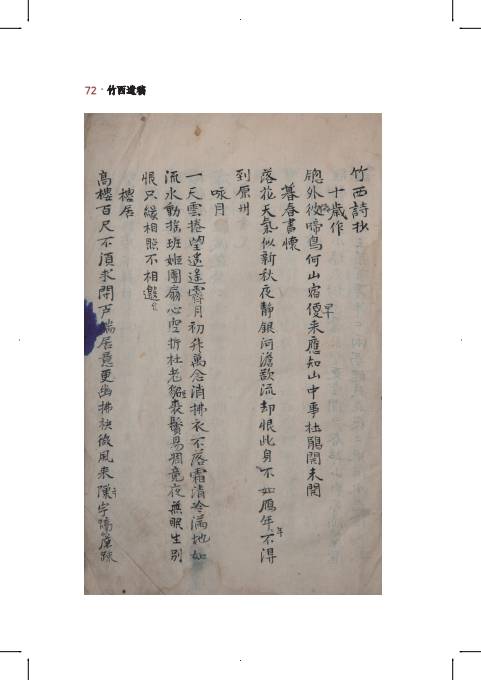 72 · 竹西遺稿
竹西詩抄
十歲作
窓外彼啼鳥何山宿便來應知山中事杜鵑開未開
早
暮春書懷
落花天氣似新秋夜靜銀河澹欲流却恨此身不如鴈年不得
年
到原州
咏月
一天雲捲望遙遙霽月初升萬念消拂衣不落霜清冷滿地如
流水動搖班姬團扇心空折杜老衰鬢易凋竟夜無眠生別
恨只緩相照不相邀
樓居
高樓百尺不須求閉戶端居意更幽拂袂微風來隙宇隔簾疎